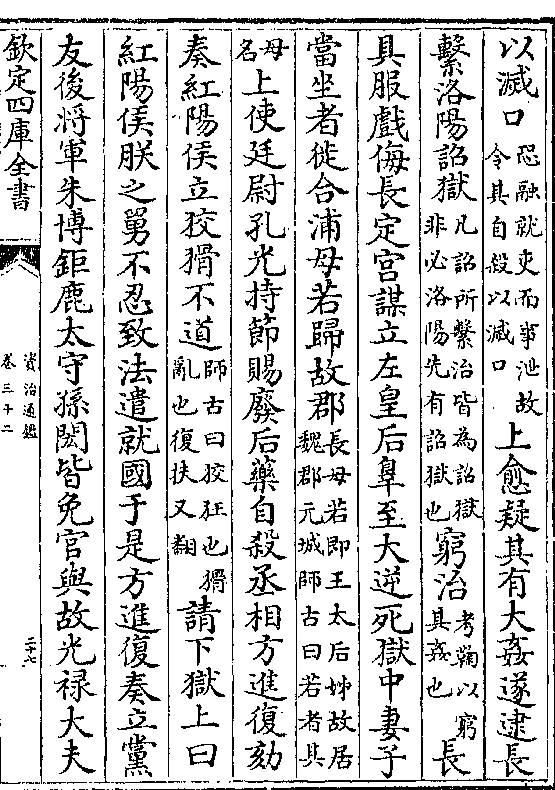 以滅口恐融就吏而事泄故令其自殺以滅口上愈疑其有大姦遂逮長
繫洛陽詔獄凡詔所繫治皆為詔獄非必洛陽先有詔獄也窮治考鞠以窮其姦也長
具服戲侮長定宫謀立左皇后辠至大逆死獄中妻子
當坐者徙合浦母若歸故郡長母若即王太后姊故居魏郡元城師古曰若者其
母名上使廷尉孔光持節賜廢后藥自殺丞相方進復劾
奏紅陽侯立狡猾不道師古曰狡狂也猾亂也復扶又翻請下獄上曰
紅陽侯朕之舅不忍致法遣就國于是方進復奏立黨
友後將軍朱博鉅鹿太守孫閎皆免官與故光祿大夫
欽定四庫全書
資治通鑑
卷三十二
二十七